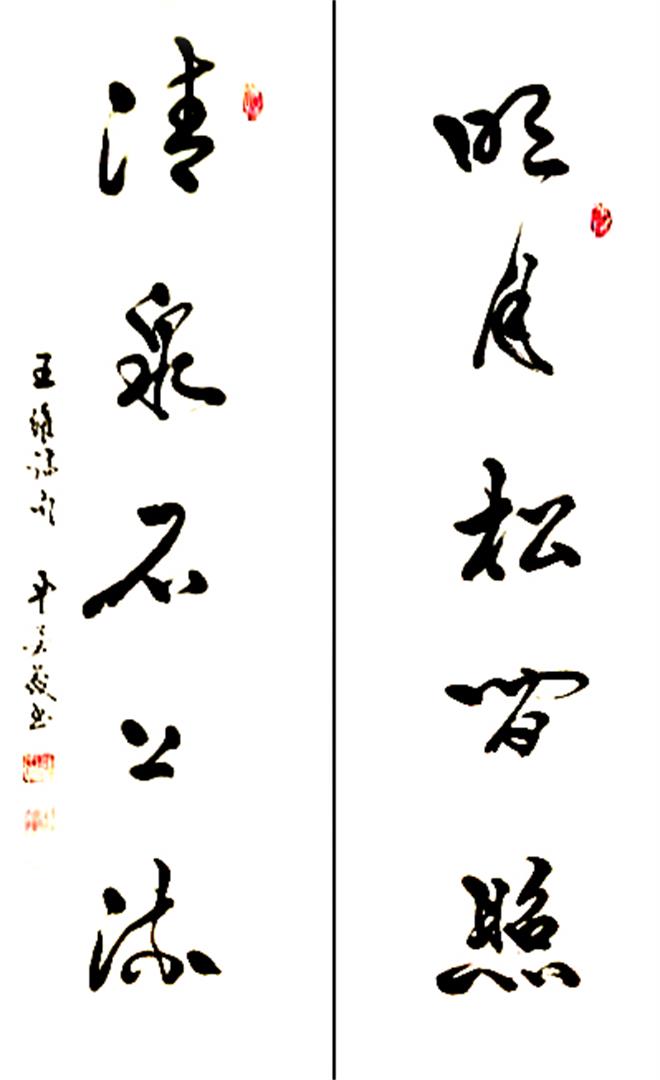 明月松间照
清泉石上流
王维诗句